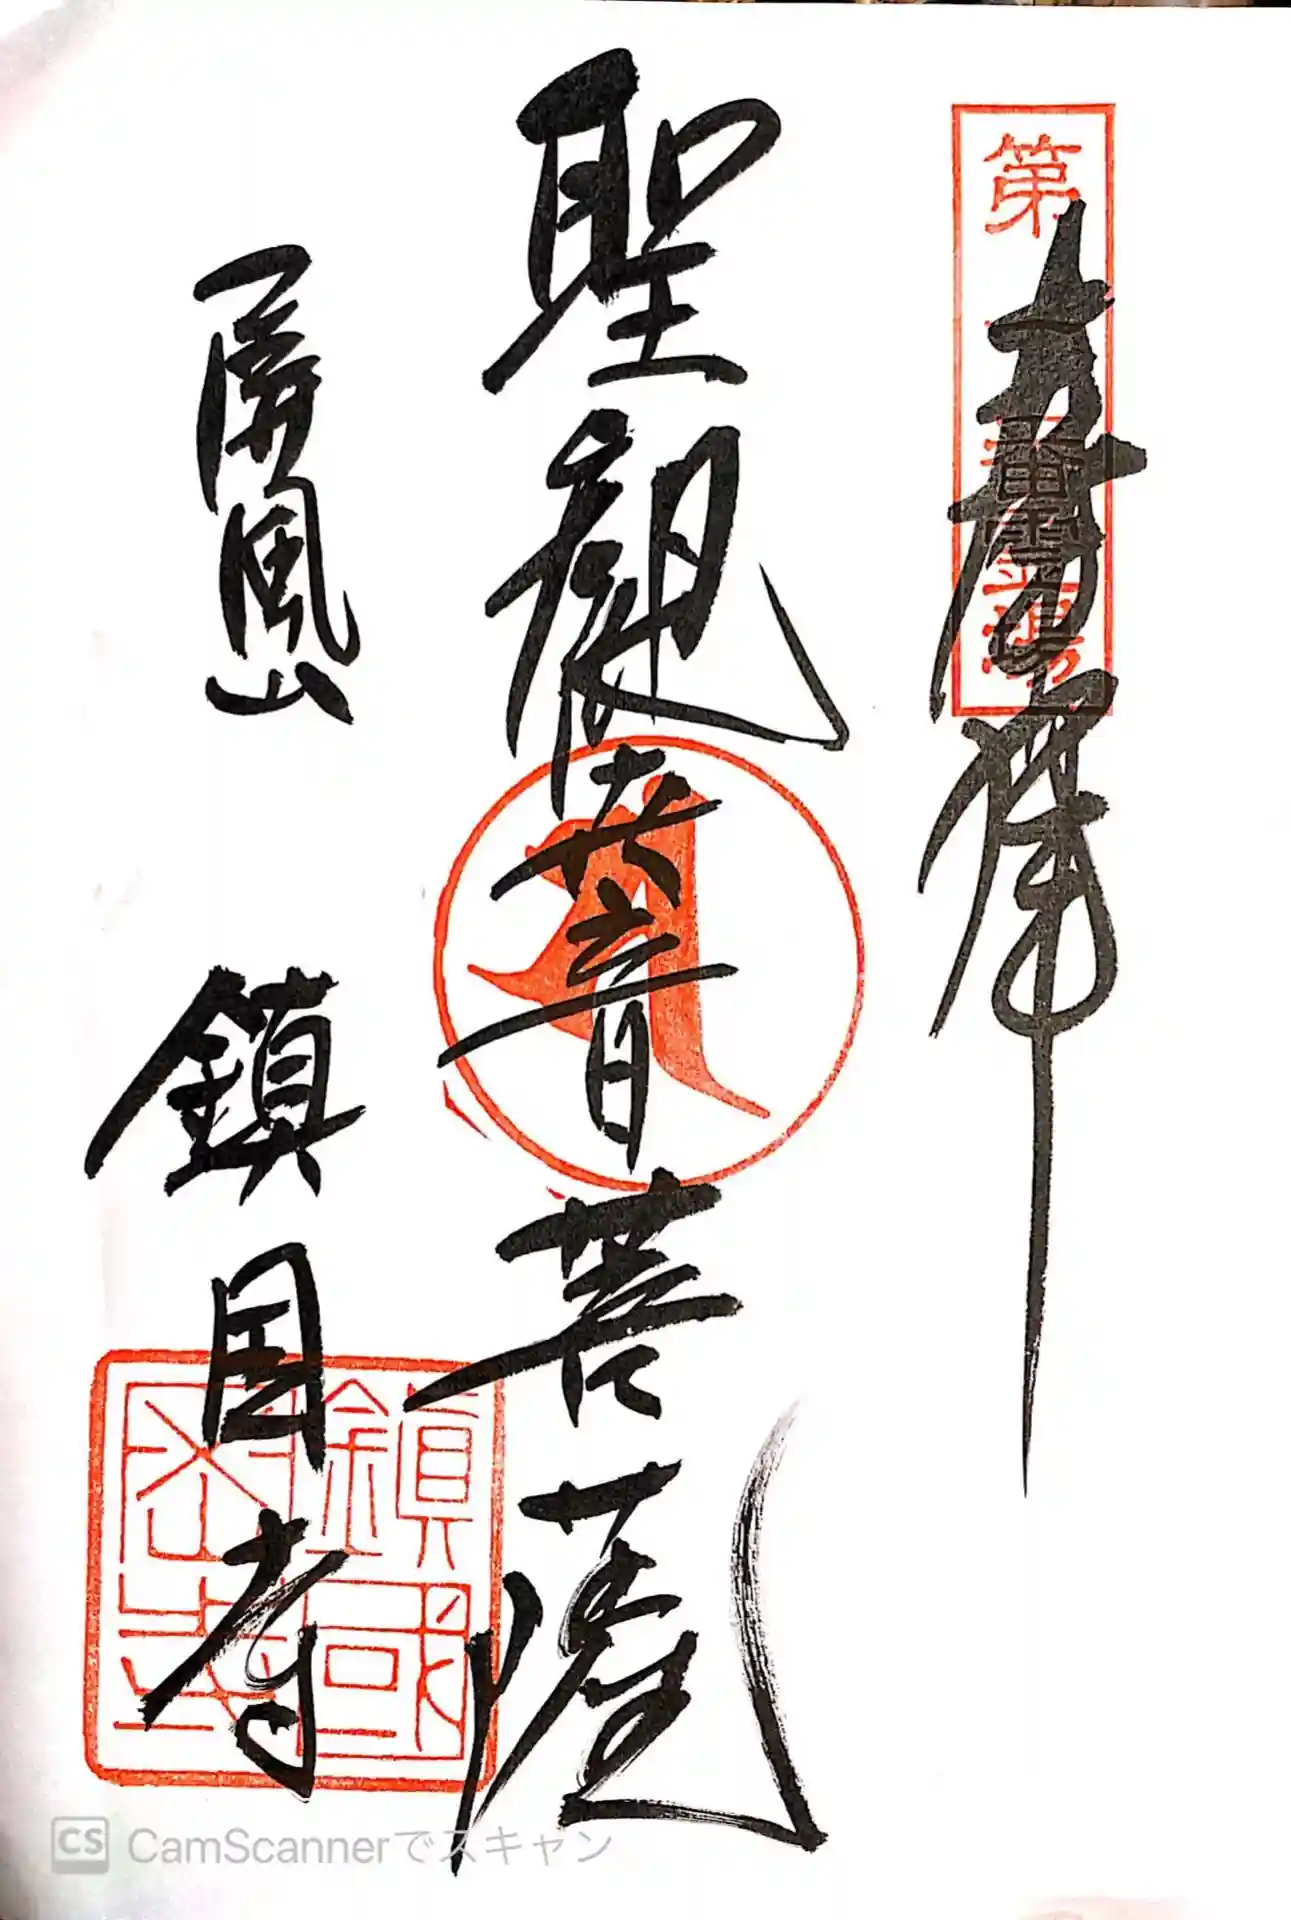 奉拝
第 番霊場
聖観世音菩薩
屏風山 鎮国寺
鎮國
CS CamScannerでスキャン